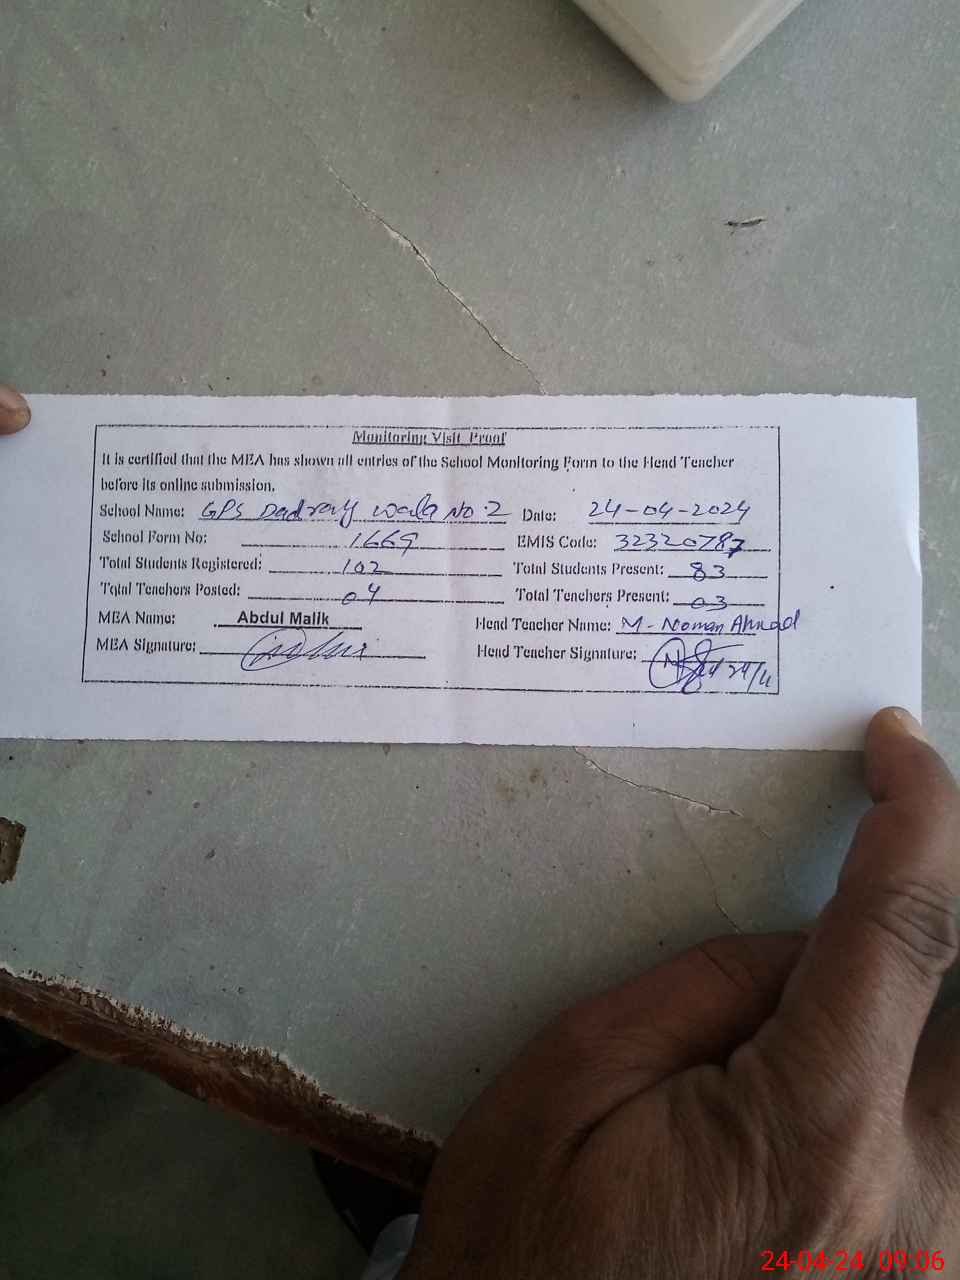 Monitoring Visit Proof
It is certified that the MEA has shown all entries of the School Monitoring Form to the Head Teacher
before its online submission.
School Name: GPS Dadray wala No. 2 Date: 24-04-2024
School Form No: 1669 EMIS Code: 32320787
Total Students Registered: 102 Total Students Present: 83
Total Teachers Posted: 04 Total Teachers Present: 03
MEA Name: Abdul Malik Head Teacher Name: M-Noman Ahmad
MEA Signature: Head Teacher Signature:
24-04-24 09:06